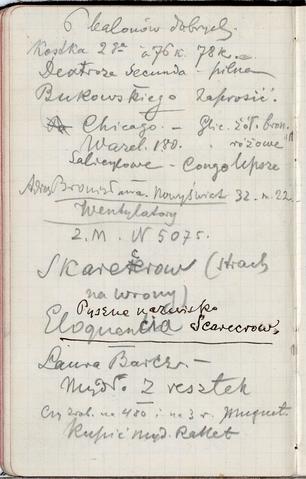 6 balonów dobrych.
Kostka 2 ga à 76 k. 78 k.
Deotroze Secunda - pilne
Bukowskiego zaprosić.
Chicago. - Glic. żół. bron.
Wazel. 180. " różowe
Salicylowe - Congo
Adres Bronisława. Nowy Świat 32. m 22.
Wentylatory
Z. M. N 5075.
Skarecrow (strach
na wrony)
Pyszne nazwisko
Eloquencia Scarecrow
Laura
Mydło z resztek
Czy zrob. na 480 i na 3 r. muguet.
Kupić myd. Rallet